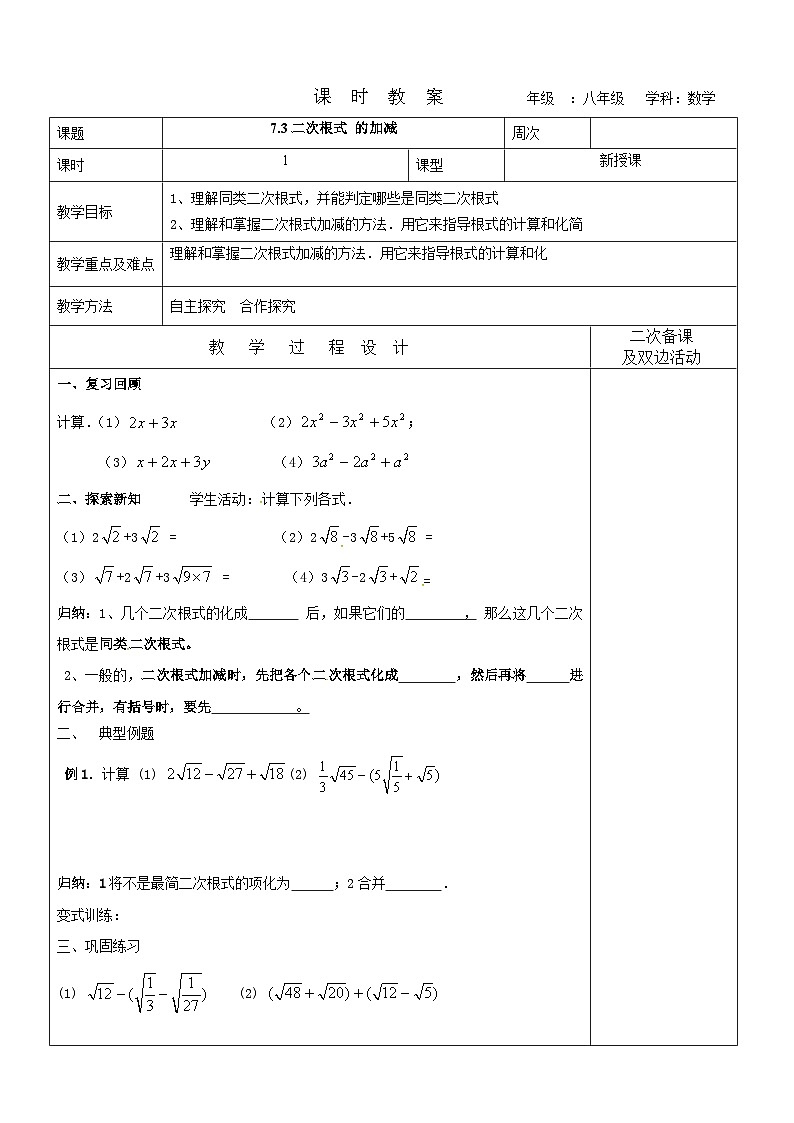 课 时 教 案 年级 ：八年级 学科：数学
课题 7.3二次根式 的加减 周次
课时 1 课型 新授课
教学目标
1、理解同类二次根式，并能判定哪些是同类二次根式
2、理解和掌握二次根式加减的方法．用它来指导根式的计算和化简
教学重点及难点 理解和掌握二次根式加减的方法．用它来指导根式的计算和化
教学方法 自主探究 合作探究
教 学 过 程 设 计
二次备课
及双边活动
一、复习回顾
计算.（1）2x+3x （2）2x²−3x²+5x²；
（3）x+2x+3y （4）3a²−2a²+a²
二、探索新知 学生活动：计算下列各式．
（1）2√2+3√2 = （2）2√8-3√8+5√8 =
（3）√7+2√7+3√(9×7) = （4）3√3-2√3+√2=
归纳：1、几个二次根式的化成_______ 后，如果它们的________， 那么这几个二次
根式是同类二次根式。
2、一般的，二次根式加减时，先把各个二次根式化成________，然后再将______进
行合并，有括号时，要先____________。
二、 典型例题
例1．计算 (1) 2√12−√27+√18 (2) 1/3√45−(5√(1/5)+√5)
归纳：1将不是最简二次根式的项化为______；2合并________．
变式训练：
三、巩固练习
(1) √12−(√(1/3)−√(1/27)) (2) (√48+√20)+(√12−√5)